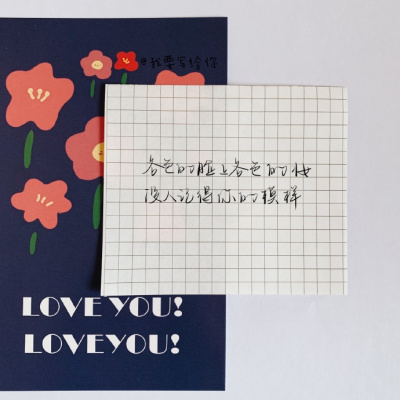 @我要写给你
各色的脸上各色的妆
没人记得你的模样
LOVE YOU!
LOVEYOU!